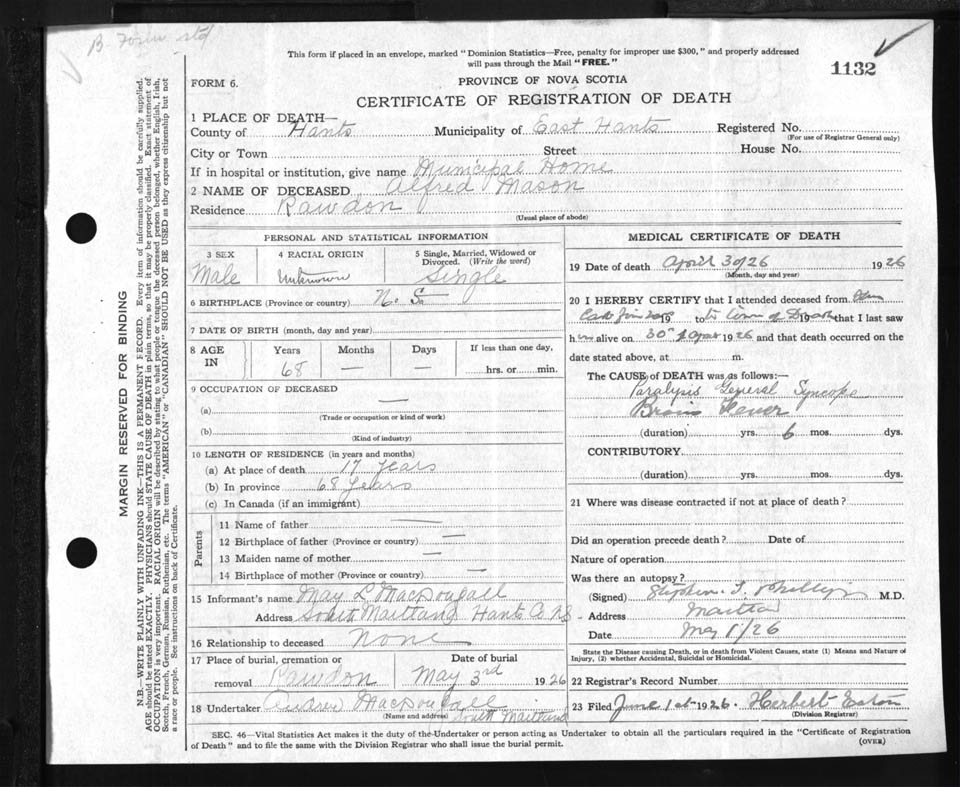 B. Form std
This form if placed in an envelope, marked "Dominion Statistics—Free, penalty for improper use $300," and properly addressed
will pass through the Mail "FREE."
1132
FORM 6.
PROVINCE OF NOVA SCOTIA
CERTIFICATE OF REGISTRATION OF DEATH
1 PLACE OF DEATH—
County of Hants Municipality of East Hants Registered No.
(For use of Registrar General only)
City or Town Street House No.
If in hospital or institution, give name Municipal Home
2 NAME OF DECEASED Alfred Mason
Residence Rawdon
(Usual place of abode)
PERSONAL AND STATISTICAL INFORMATION
3 SEX 4 RACIAL ORIGIN 5 Single, Married, Widowed or
Divorced. (Write the word)
Male Unknown Single
6 BIRTHPLACE (Province or country) N. S.
7 DATE OF BIRTH (month, day and year)
8 AGE IN Years Months Days If less than one day,
68 — — hrs. or min.
9 OCCUPATION OF DECEASED
(a) —
(Trade or occupation or kind of work)
(b)
(Kind of industry)
10 LENGTH OF RESIDENCE (in years and months)
(a) At place of death 17 years
(b) In province 68 years
(c) In Canada (if an immigrant)
Parents
11 Name of father —
12 Birthplace of father (Province or country) —
13 Maiden name of mother —
14 Birthplace of mother (Province or country) —
15 Informant's name May L MacDougall
Address South Maitland Hants Co NS
16 Relationship to deceased None
17 Place of burial, cremation or Date of burial
removal Rawdon May 3rd 1926
18 Undertaker Andrew MacDougall
(Name and address) South Maitland
MEDICAL CERTIFICATE OF DEATH
19 Date of death April 30/26 1926
(Month, day and year)
20 I HEREBY CERTIFY that I attended deceased from
19 to time of Death 19 that I last saw
him alive on 30th of April 1926 and that death occurred on the
date stated above, at m.
The CAUSE of DEATH was as follows:—
Paralysis General Syncope
Brain Fever
(duration) yrs. 6 mos. dys.
CONTRIBUTORY
(duration) yrs. mos. dys.
21 Where was disease contracted if not at place of death?
Did an operation precede death? Date of
Nature of operation
Was there an autopsy?
(Signed) Stephen I. Phillips M.D.
Address Maitland
Date May 1/26
State the Disease causing Death, or in death from Violent Causes, state (1) Means and Nature of
Injury, (2) whether Accidental, Suicidal or Homicidal.
22 Registrar's Record Number
23 Filed June 1st 1926. Herbert Eaton
(Division Registrar)
SEC. 46—Vital Statistics Act makes it the duty of the Undertaker or person acting as Undertaker to obtain all the particulars required in the "Certificate of Registration
of Death" and to file the same with the Division Registrar who shall issue the burial permit.
(OVER)
MARGIN RESERVED FOR BINDING
N.B.—WRITE PLAINLY WITH UNFADING INK—THIS IS A PERMANENT RECORD. Every item of information should be carefully supplied.
AGE should be stated EXACTLY. PHYSICIANS should STATE CAUSE OF DEATH in plain terms, so that it may be properly classified. Exact statement of
OCCUPATION is very important. RACIAL ORIGIN will be described by stating to what people or tongue the deceased person belonged, whether English, Irish,
Scotch, French, German, Russian, Ruthenian, etc. The terms "AMERICAN" or "CANADIAN" SHOULD NOT BE USED as they express citizenship but not
a race or people. See instructions on back of Certificate.